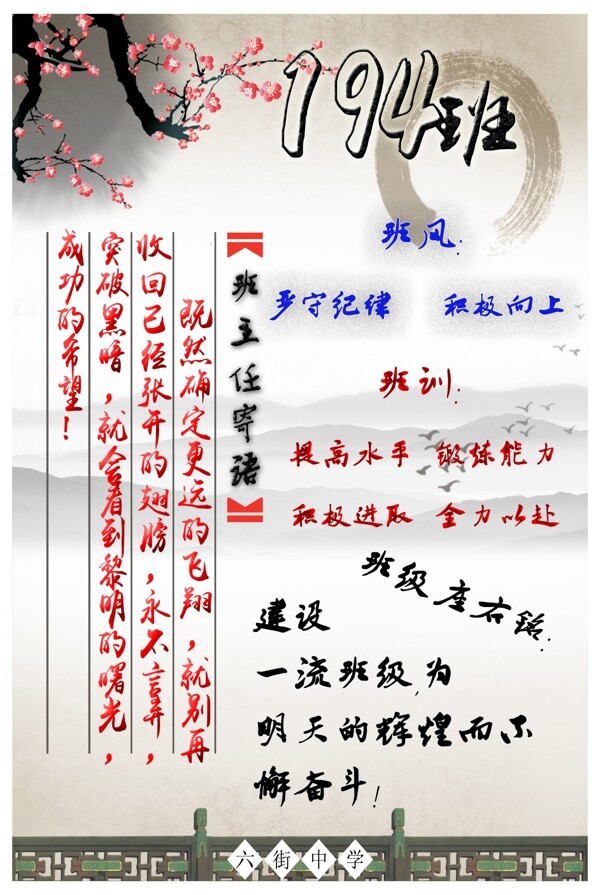 194班
班风：
严守纪律 积极向上
班训：
提高水平 锻炼能力
积极进取 全力以赴
班主任寄语
既然确定更远的飞翔，就别再
收回已经张开的翅膀，永不言弃，
突破黑暗，就会看到黎明的曙光，
成功的希望！
班级座右铭：
建设
一流班级，为
明天的辉煌而不
懈奋斗！
六街中学